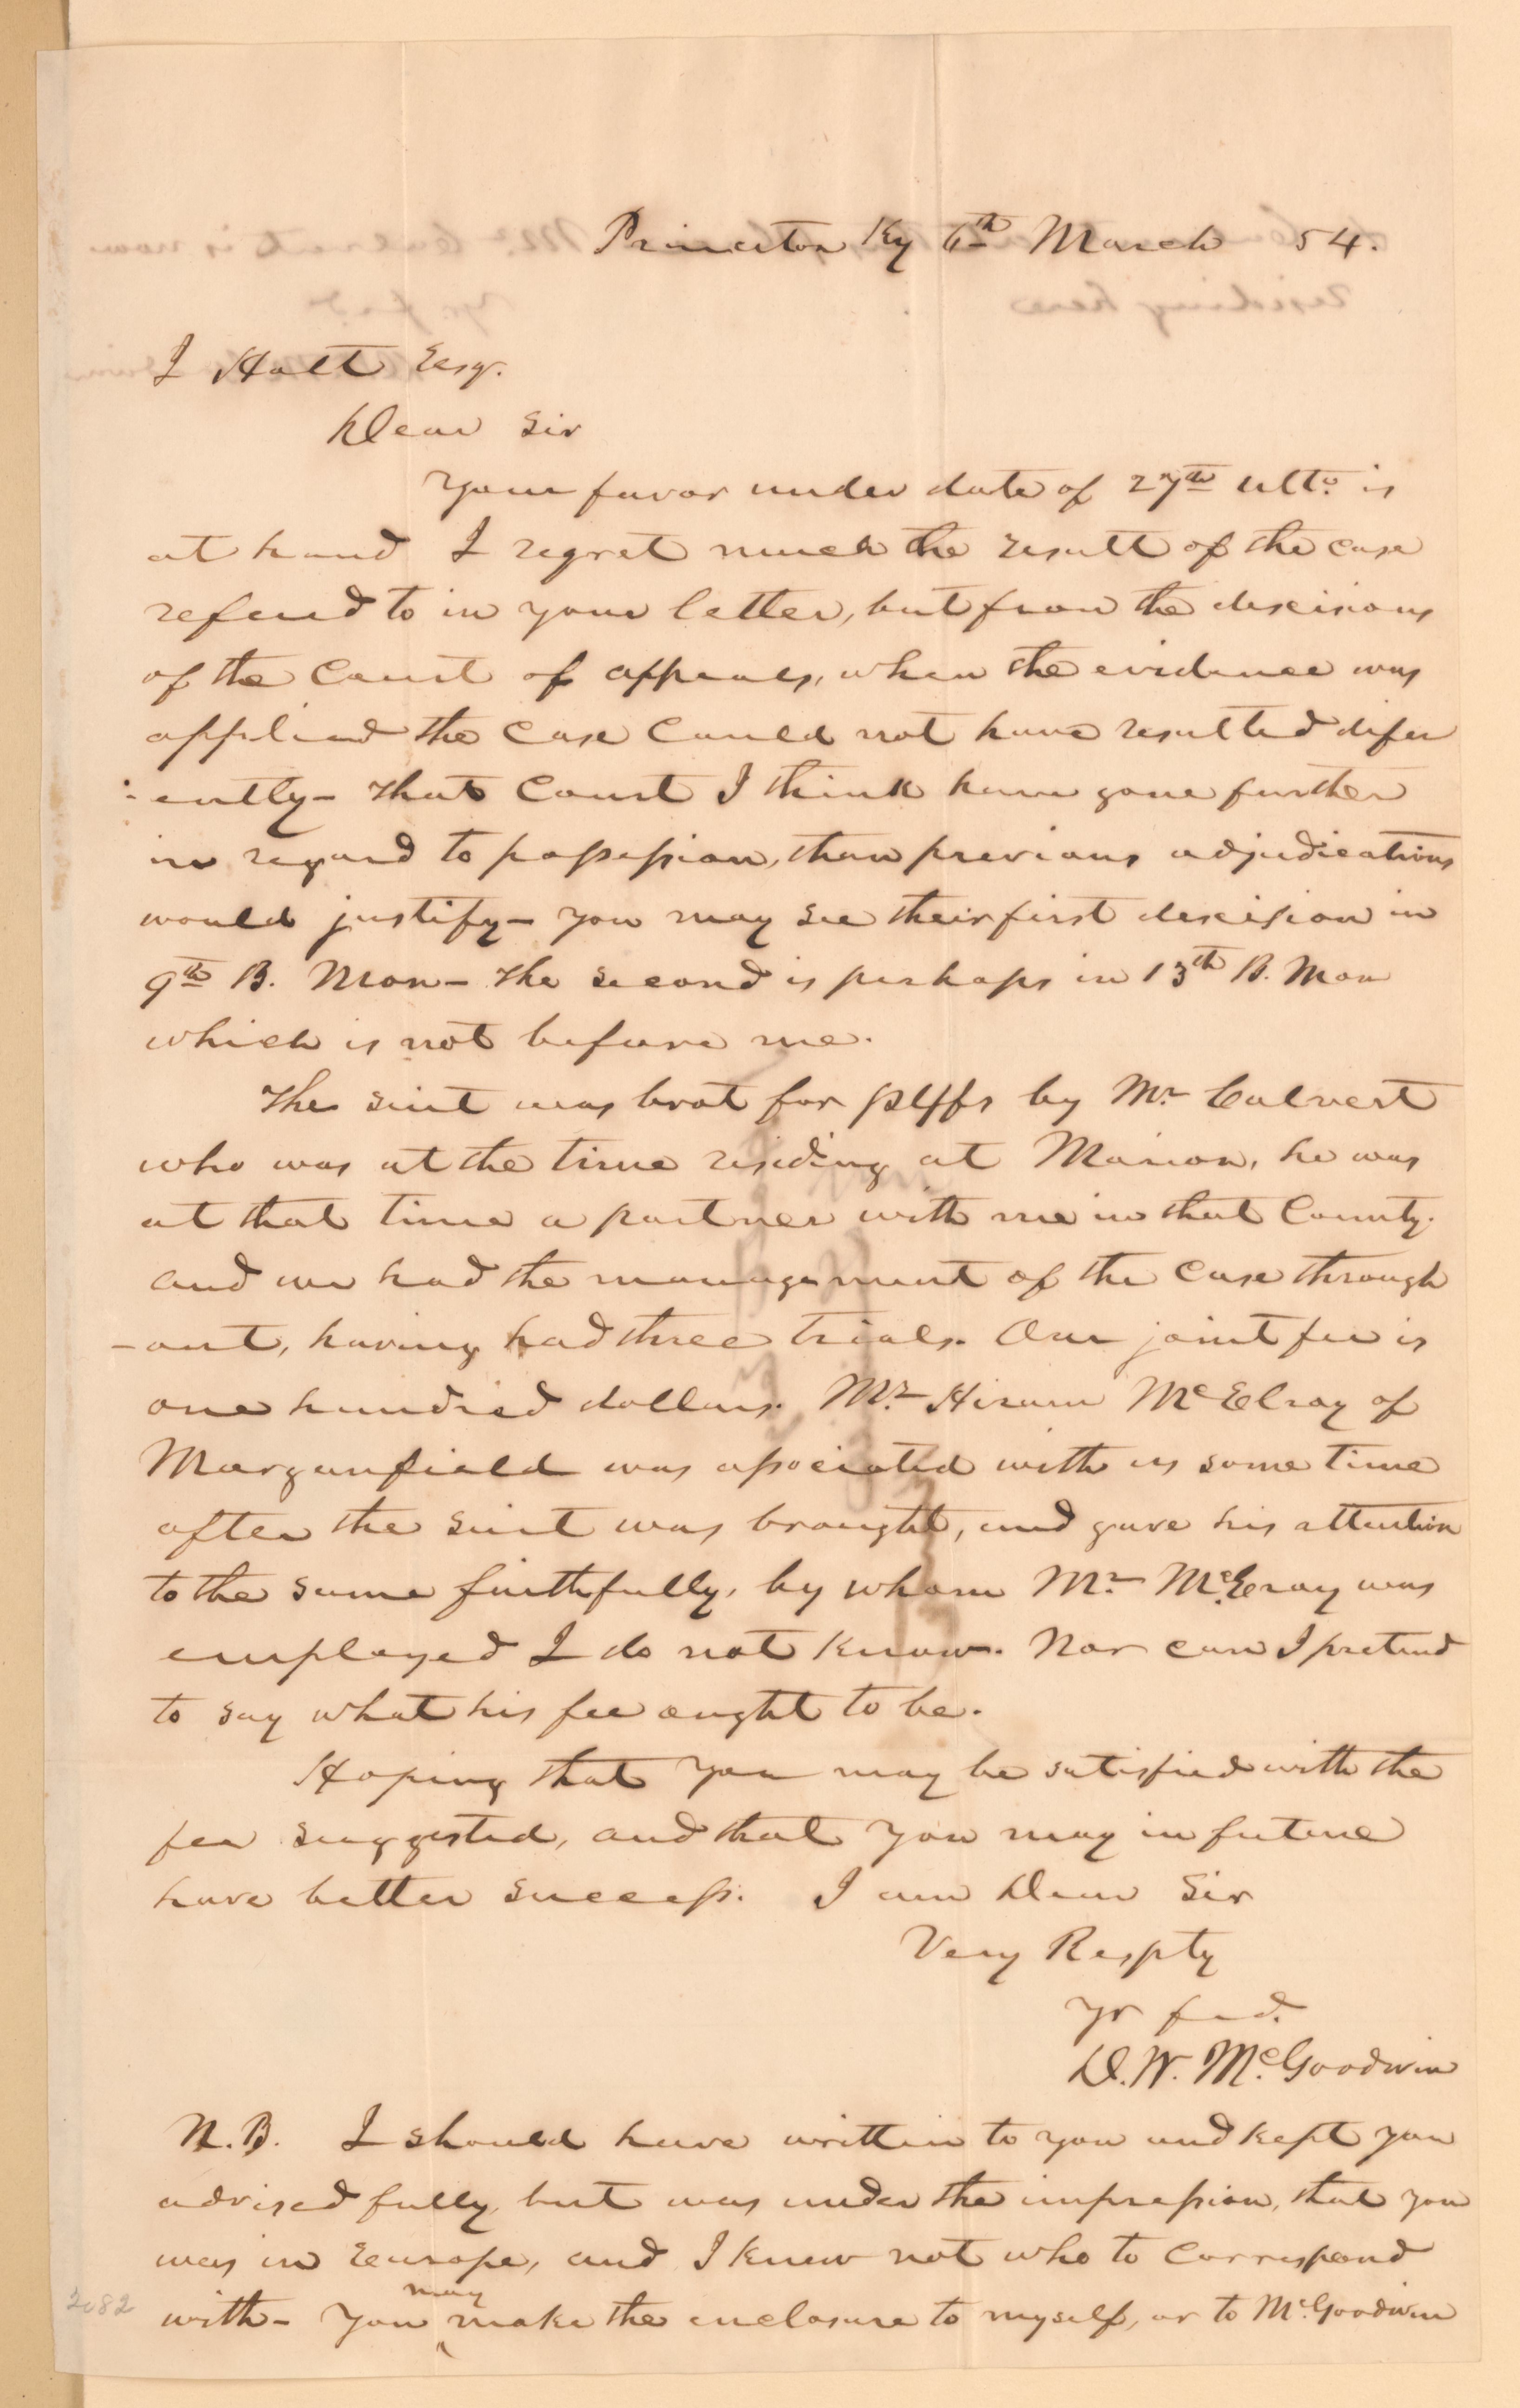 Princeton Ky 6th March 54.
J Holt Esqr.
Dear Sir
Your favor under date of 27th ulto. is
at hand I regret much the result of the case
referd to in your letter, but from the descisions
of the Court of appeals, when the evidence was
applied the case could not have resulted difer
-ently- That Court I think have gone further
in regard to possession, than previous adjudications
would justify- you may see their first descision in
9th B. Mon- The second is perhaps in 13th B. Mon
which is not before me.
The suit was brot for plffs by Mr Calvert
who was at the time residing at Marion, he was
at that time a partner with me in that County.
and we had the management of the case through
-out, having had three trials. Our joint fee is
one hundred dollars. Mr. Hiram McElroy of
Morganfield was associated with us some time
after the suit was brought, and gave his attention
to the same faithfully, by whom Mr McElroy was
employed I do not know. Nor can I pretend
to say what his fee ought to be.
Hoping that you may be satisfied with the
fee suggested, and that you may in future
have better success. I am Dear Sir
Very Respty
Yr frd.
D. W. McGoodwin
N.B. I should have written to you and kept you
advised fully, but was under the impression, that you
was in Europe, and I knew not who to correspond
may
with- You make the enclosure to myself, or to McGoodwin
2082